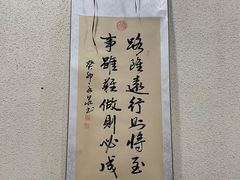 路雖遠行則將至
事雖難做則必成
癸卯